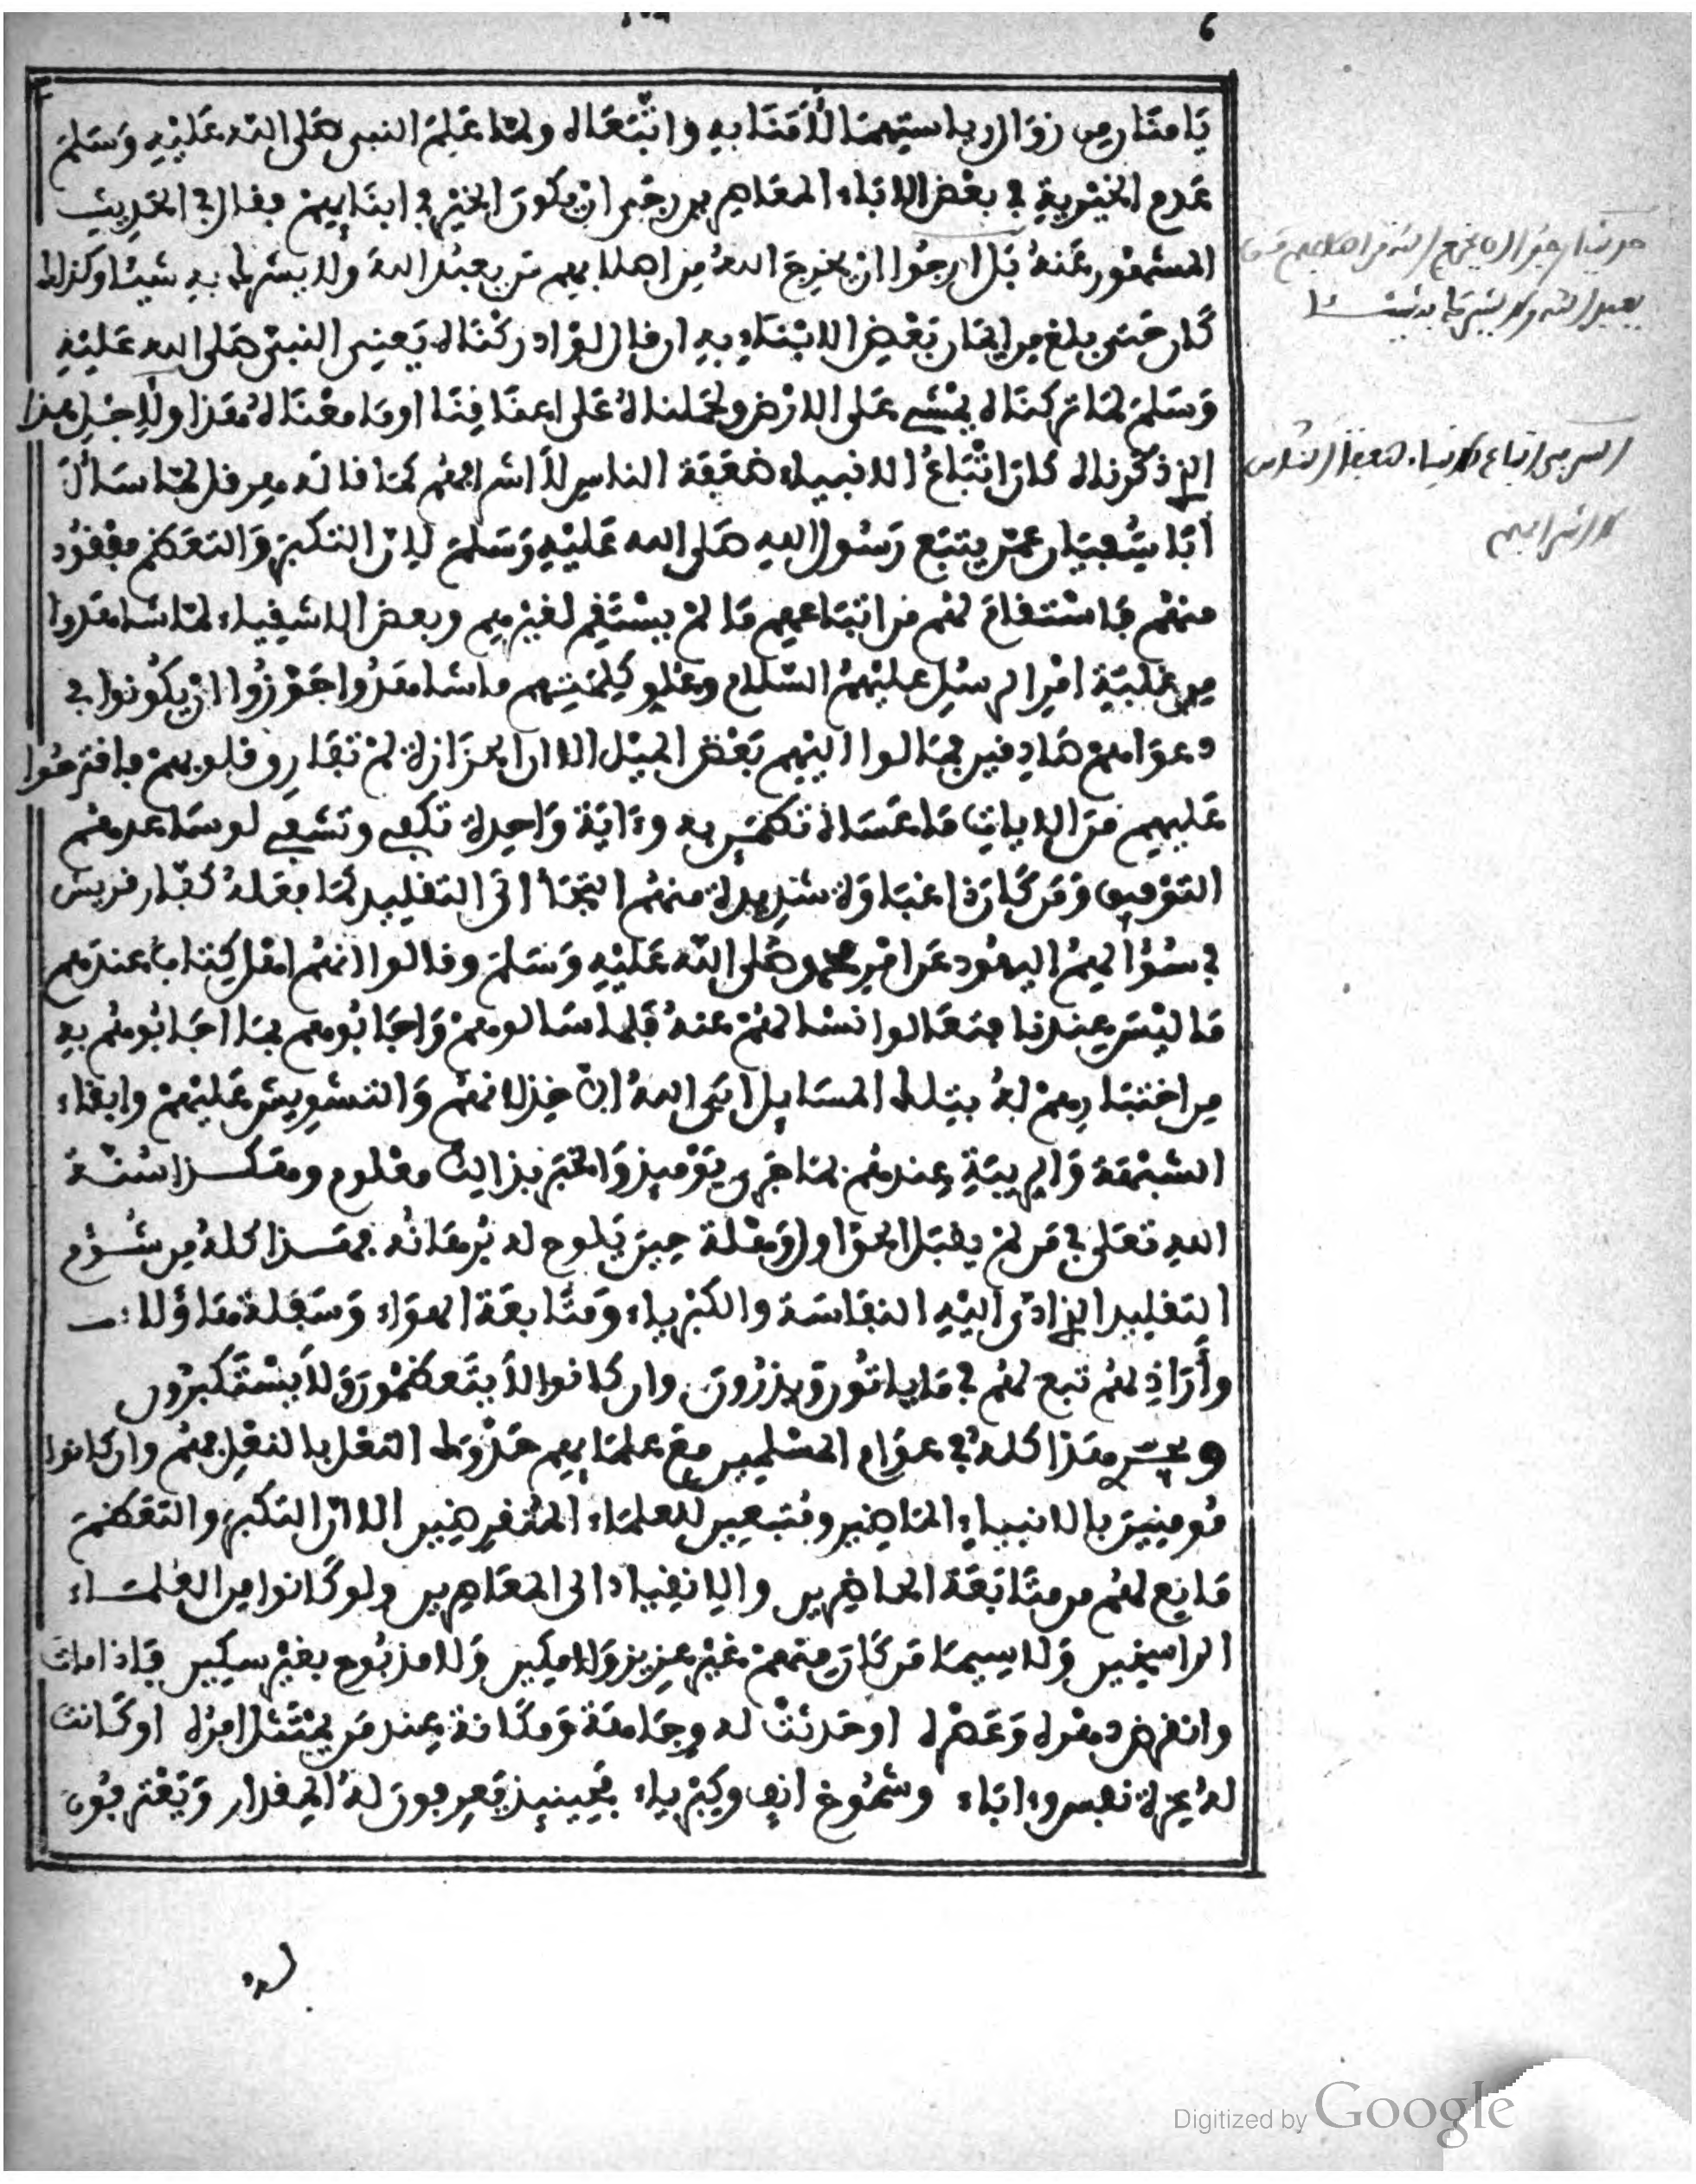 6
يَامَنَّا مِن زوَال رياستِهمَا لأَامَنَا به وَاتَّبَعَاه ولمّا عَلِمَ النبى صَلى اللّه عَليْهِ وَسَلمَ
عَدم الخيْريةِ في بعْض الابَاء المعَاصِرين رجَى انْ يكونَ الخيْر في ابنَايهمْ فقال في الحَدِيث
المشهُور عَنهُ بَل ارجُوا انْ يخرجَ اللهُ مِن اصلابهم مَن يعبُد اللهَ ولا يشرك به شيئا وكذلك
كَان حَتى بلغ من ايمَان بَعْضِ الابْنَاءِ به ان قال لوَادركْنَاه يَعنِى النبىَّ صَلى الله عَليْهِ
وَسَلمَ لمَا تركنَاه يمْشِي عَلى الارْض ولحمَلناهُ عَلى اعنَاقِنَا اومَا معْنَاهُ هَذا ولأَجْلِ هذا
الذِي ذكرْناه كانَ اتْبَاعُ الانبياء ضعَفَة الناسِ لاَ اشرافهُم كمَا قالَه هِرقل لمّا سَأَلَ
أبَا سُفيَان عمّن يتبَع رَسُول اللهِ صَلى الله عَليْهِ وَسَلمَ لانّ التكبرَ وَالتعَظمَ مفْقُود
منهُم فَاسْتقامَ لهُم من اتبَاعهِم مَا لمْ يسْتَقِم لغيْرهِم وبعض الاشقِياء لمّا شاهَدوا
من غلبَةِ امْر الرسُلِ عليْهمُ السّلام وعُلو كلمَتِهم ما شاهَدُوا جَوّزُوا انْ يكُونوا في
دعوَاهمْ صَادِقين فمَالوا اليْهِم بَعْضَ الميْل الا ان الحزَازة لمْ تفَارق قلوبهمْ فاقترحُوا
عَليهِم مِنَ الايات مَا عَسَاهُ تطمَئِن به وءَايَة وَاحِدة تكفي وتشفي لو سَاعدهُم
التوْفيق وَمَن كَانَ ذا غبَاوَة شدِيدة منهُم التجَأ الى التقليد كمَا فعَلهُ كفّار قريش
في سُؤالهمُ اليهُود عَن امْر محمد صَلى اللّه عَليْهِ وَسَلمَ وقالوا انهُم اهْل كِتاب عندَهم
مَا ليْسَ عِندنا فتعَالوا نسْالهُمْ عنهُ فَلما سَالوهمْ وَاجَابُوهم بمَا اجَابُوهُم به
من اختبَارهمْ لهُ بتلك المسَايِل ابَى اللهُ الاّ خِذلانهُم وَالتشويش عَليْهمْ وابقاء
الشبْهَة وَالريبَةِ عِندهُم بمَا جَرى يَوْميذ وَالخبَر بذالك معْلوم وهَكذا سُنّة
اللهِ تعَلى في مَن لمْ يقبَل الحقّ اوّل وهْلة حِينَ يَلوح له بُرهَانُه فهَذا كلهُ مِن شُؤم
التقليد الذِي ادّى اليْهِ النفاسَة والكبْرياء وَمتَابعَة الهوَاء وَسَفلة هَاؤلاءِ
وأَرَاذِلهُم تبع لهُم في مَا ياتُون وَيذرُونَ وان كانوا لاَ يتَعظمُونَ وَلا يسْتَكبرُون
ويجْري هَذا كلهُ في عوَام المسْلِمِين معَ علمَايهم حَذْوَك النعْل بالنعْل فهُم وان كانوا
مُومِنِينَ بالانبيَاءِ المَاضِين ومُتبعِين للعلمَاء المُنقرِضِين الا انّ التكبرَ والتعَظمَ
مَانِع لهُم من متَابَعَة الحاضِرين والانقيَاد الى المعَاصِرين ولو كَانوا مِن العُلمَاء
الراسخِين وَلا سِيمَا مَن كَانَ منهمْ غيْر عزِيز وَلا مكِين وَلا مذبُوح بغيْر سكِين فَاذا ماتَ
وانقرضَ دهْره وَعَصْره اوحَدثتْ له وجَاهَة وَمكَانة عِند مَن يمْتَثل امرَه اوكَانتْ
لهُ عزة نفس واباء وشمُوخ انف وكِبْرياء فَحِينيذ يَعرِفونَ لهُ المقدار وَيَغْتَرفُون
Digitized by Google